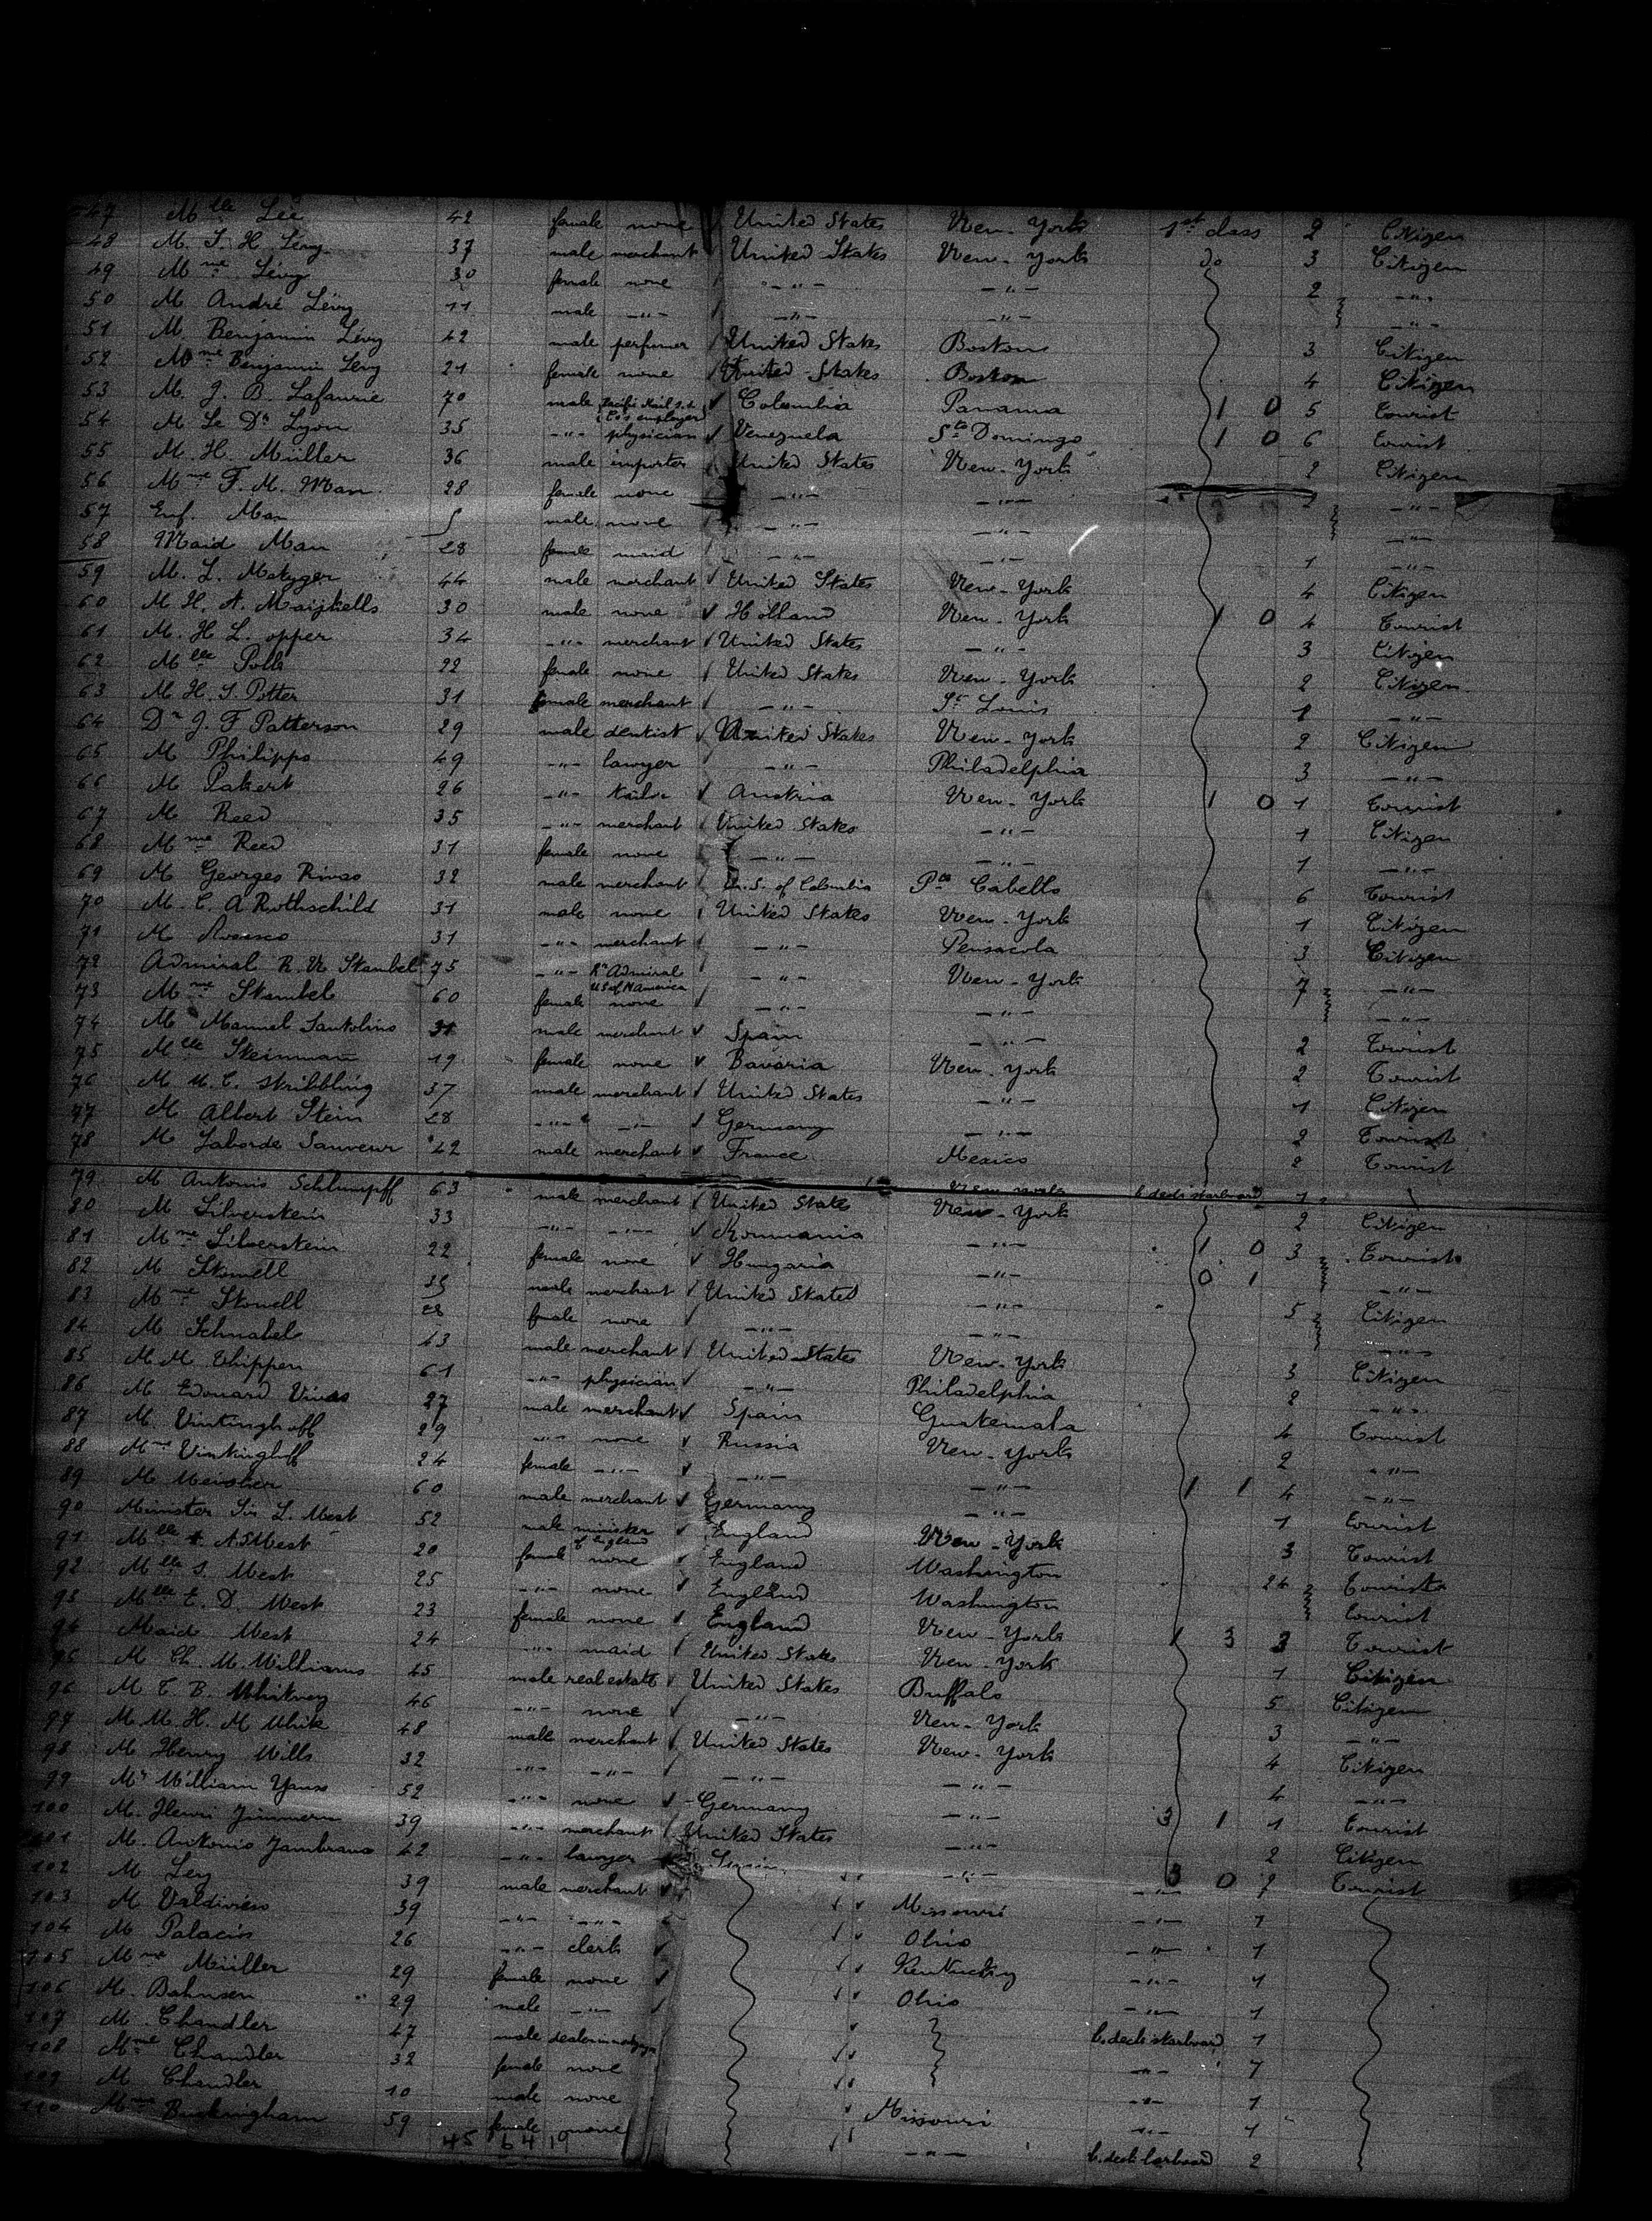 47 Mlle Lee 42 female none United States New-York 1st class 2 Citizen
48 M. S. H. Lévy 37 male merchant United States New-York do 3 Citizen
49 Mme Lévy 30 female none -"- -"- 2 -"-
50 M André Lévy 11 male -"- -"- -"- -"-
51 M Benjamin Lévy 42 male perfumer United States Boston 3 Citizen
52 Mme Benjamin Lévy 21 female none United States Boston 4 Citizen
53 M. J. B. Lafaurie 70 male Pacific Mail S.S. Co's employer Colombia Panama 1 0 5 tourist
54 M Le Dr Lyon 35 -"- physician Venezuela Sto Domingo 1 0 6 tourist
55 M. H. Müller 36 male importer United States New-York 2 Citizen
56 Mme F. M. Man 28 female none -"- -"- -"-
57 Enf. Man 5 male none -"- -"- -"-
58 Maid Man 28 female maid -"- -"- 1 -"-
59 M. L. Metzger 44 male merchant United States New-York 4 Citizen
60 M H. A. 30 male none Holland New-York 1 0 4 Tourist
61 M. H L. opper 34 -"- merchant United States -"- 3 Citizen
62 Mlle Polk 22 female none United States New-York 2 Citizen
63 M H. S. Potter 31 male merchant -"- St Louis 1 -"-
64 Dr J. F Patterson 29 male dentist United States New-York 2 Citizen
65 M Philipps 49 -"- lawyer -"- Philadelphia 3 -"-
66 M Pakert 26 -"- tailor Austria New-York 1 0 1 Tourist
67 M Reed 35 -"- merchant United States -"- 1 Citizen
68 Mme Reed 31 female none -"- -"- 1 -"-
69 M Georges Rivas 32 male merchant U.S. of Colombia Pto Cabello 6 Tourist
70 M. C. A Rothschild 31 male none United States New-York 1 Citizen
71 M 31 -"- merchant -"- Pensacola 3 Citizen
72 Admiral R. N Stembel 75 -"- Rr Admiral US of N America -"- New-York 7 -"-
73 Mme Stembel 60 female none -"- -"-
74 M Manuel Santolino 31 male merchant Spain -"- 2 Tourist
75 Mlle Steinman 19 female none Bavaria New-York 2 Tourist
76 M M. C. Stribbling 37 male merchant United States -"- 1 Citizen
77 M Albert Stein 28 -"- -"- Germany -"- 2 Tourist
78 M Laborde Sauveur 42 male merchant France Mexico 2 Tourist
79 M Antonio Schlumpff 63 male merchant United States New-York b deck starboard 1
80 M Silverstein 33 -"- -"- Roumania New-York 2 Citizen
81 Mme Silverstein 22 female none Hungaria -"- 1 0 3 Tourist
82 M Stowell 35 male merchant United States -"- 0 1 -"-
83 Mme Stowell 28 female none -"- -"- 5 Citizen
84 M Schnabel 43 male merchant United States New-York -"-
85 M M. Thippen 61 -"- physician -"- Philadelphia 3 Citizen
86 M Edouard Vivas 27 male merchant Spain Guatemala 2 -"-
87 M. Vintinghoff 29 -"- none Russia New-York 4 Tourist
88 Mme Vintinghoff 24 female -"- -"- -"- 2 -"-
89 M 60 male merchant Germany -"- 1 1 4 -"-
90 Minister Sir L. West 52 male minister of England England New-York 1 tourist
91 Mlle A. S West 20 female none England Washington 3 Tourist
92 Mlle S. West 25 -"- none England Washington 24 Tourists
93 Mlle E. D. West 23 female none England New-York tourist
94 Maid West 24 -"- maid United States New-York 1 3 3 Tourist
95 M Ch. M. Williams 45 male real estate United States Buffalo 1 Citizen
96 M T. B. Whitney 46 -"- none -"- New-York 5 Citizen
97 M. M. H. M White 48 male merchant United States New-York 3 -"-
98 M Henry Wills 32 -"- -"- -"- -"- 4 Citizen
99 Mr William 52 -"- none Germany -"- 4 -"-
100 M. Henri Zimmern 39 -"- merchant United States -"- 3 1 1 Tourist
101 M. Antonio Zambrano 42 -"- lawyer Spain -"- 2 Citizen
102 M Levy 39 male merchant -"- 3 0 2 Tourist
103 M Valdivieso 39 -"- -"- Missouri -"- 1
104 M Palacin 26 -"- clerk Ohio -"- 1
105 Mme Müller 29 female none Kentucky -"- 1
106 M. Bahnsen 29 male -"- Ohio -"- 1
107 M. Chandler 47 male b. deck starboard 1
108 Mme Chandler 32 female none -"- 1
109 M Chandler 10 male none -"- 1
110 Mme Buckingham 59 female none Missouri -"- 1
45 64 19 -"- b. deck larboard 2